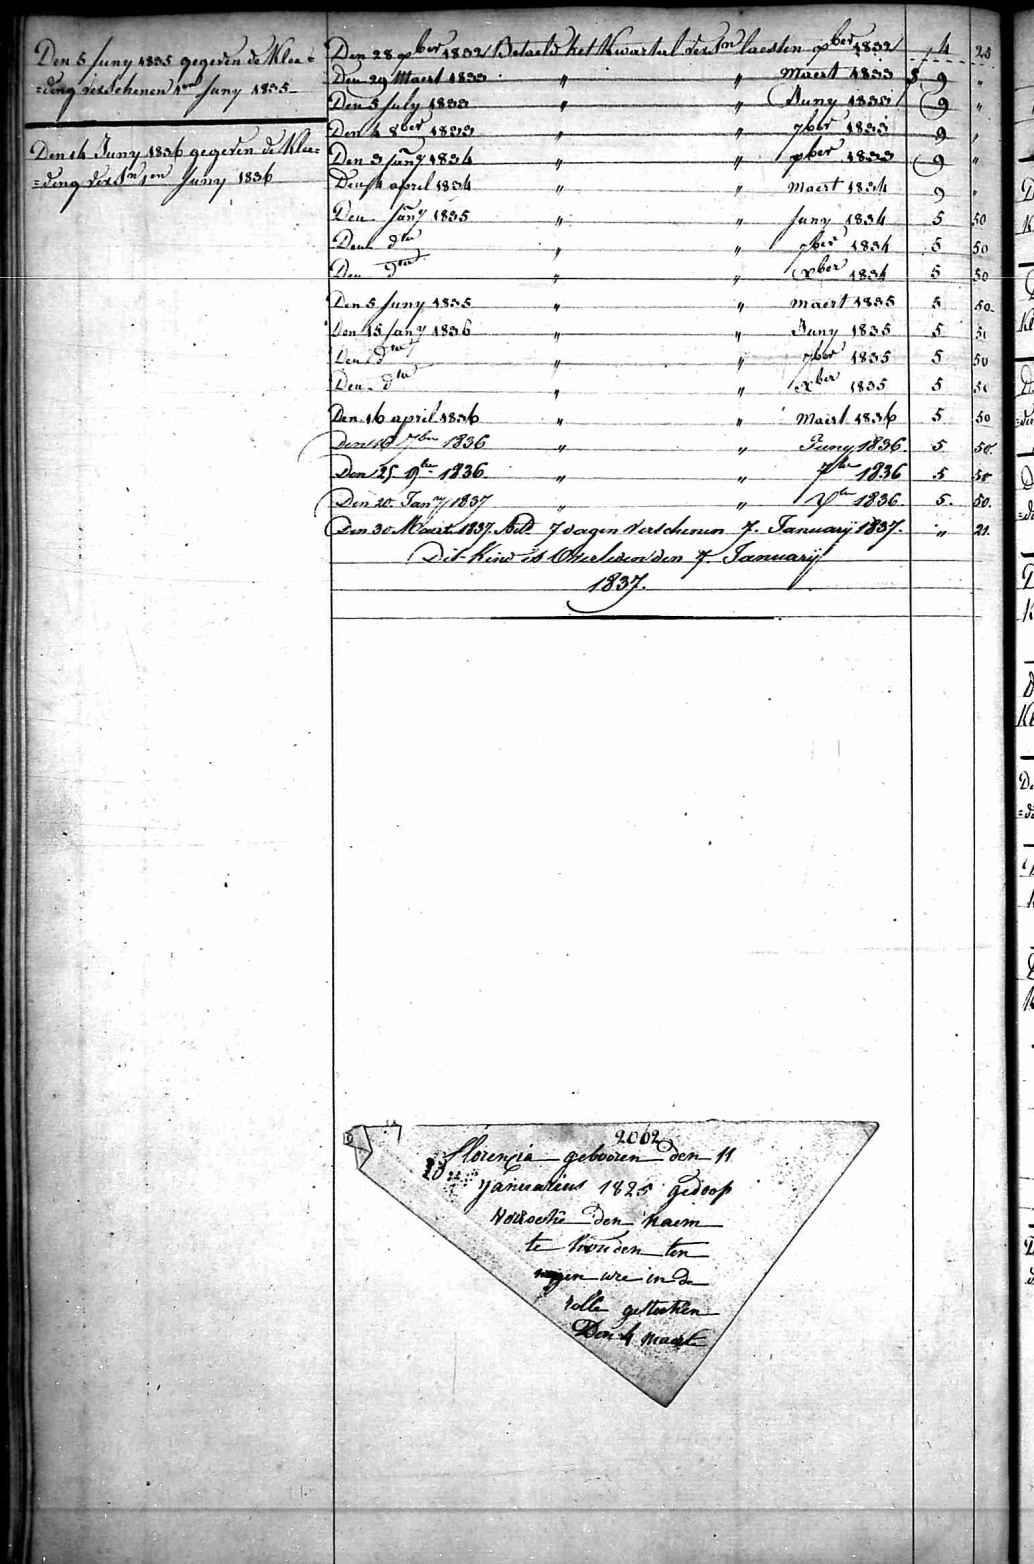 Den 5 Juny 1835 gegeven de klee=
=ding verschenen 1en Juny 1835
Den 14 Juny 1836 gegeven de klee=
=ding versn 1en Juny 1836
Den 28 xber 1832 Betaeld het kwartael versn laesten xber 1832 4 25
Den 29 Maert 1833 " " Maert 1833 9 "
Den 5 July 1833 " " Juny 1833 9 "
Den 4 8ber 1833 " " 7ber 1833 9 "
Den 3 Jany 1834 " " xber 1833 9 "
Den 4 april 1834 " " Maert 1834 9 "
Den Jany 1835 " " Juny 1834 5 50
Den dto " " 7ber 1834 5 50
Den dto " " xber 1834 5 50
Den 5 Juny 1835 " " Maert 1835 5 50
Den 15 Jany 1836 " " Juny 1835 5 50
Den dto " " 7ber 1835 5 50
Den dto " " xber 1835 5 50
Den 16 april 1836 " " Maert 1836 5 50
Den 16 7ber 1836 " " Juny 1836. 5 50.
Den 25 9ber 1836. " " 7ber 1836 5 50
Den 20 Jany 1837 " " Xber 1836. 5. 50.
Den 30 Maert 1837. 7 dagen verschenen 7. Januarij 1837. " 21.
Dit kind is overleden den 7. Januarij
1837.
2002
Florencia gebooren den 11
Januarius 1825 gedoop
den naem
te houden ten
negen ure in de
rolle gesteken
Den 4 maert